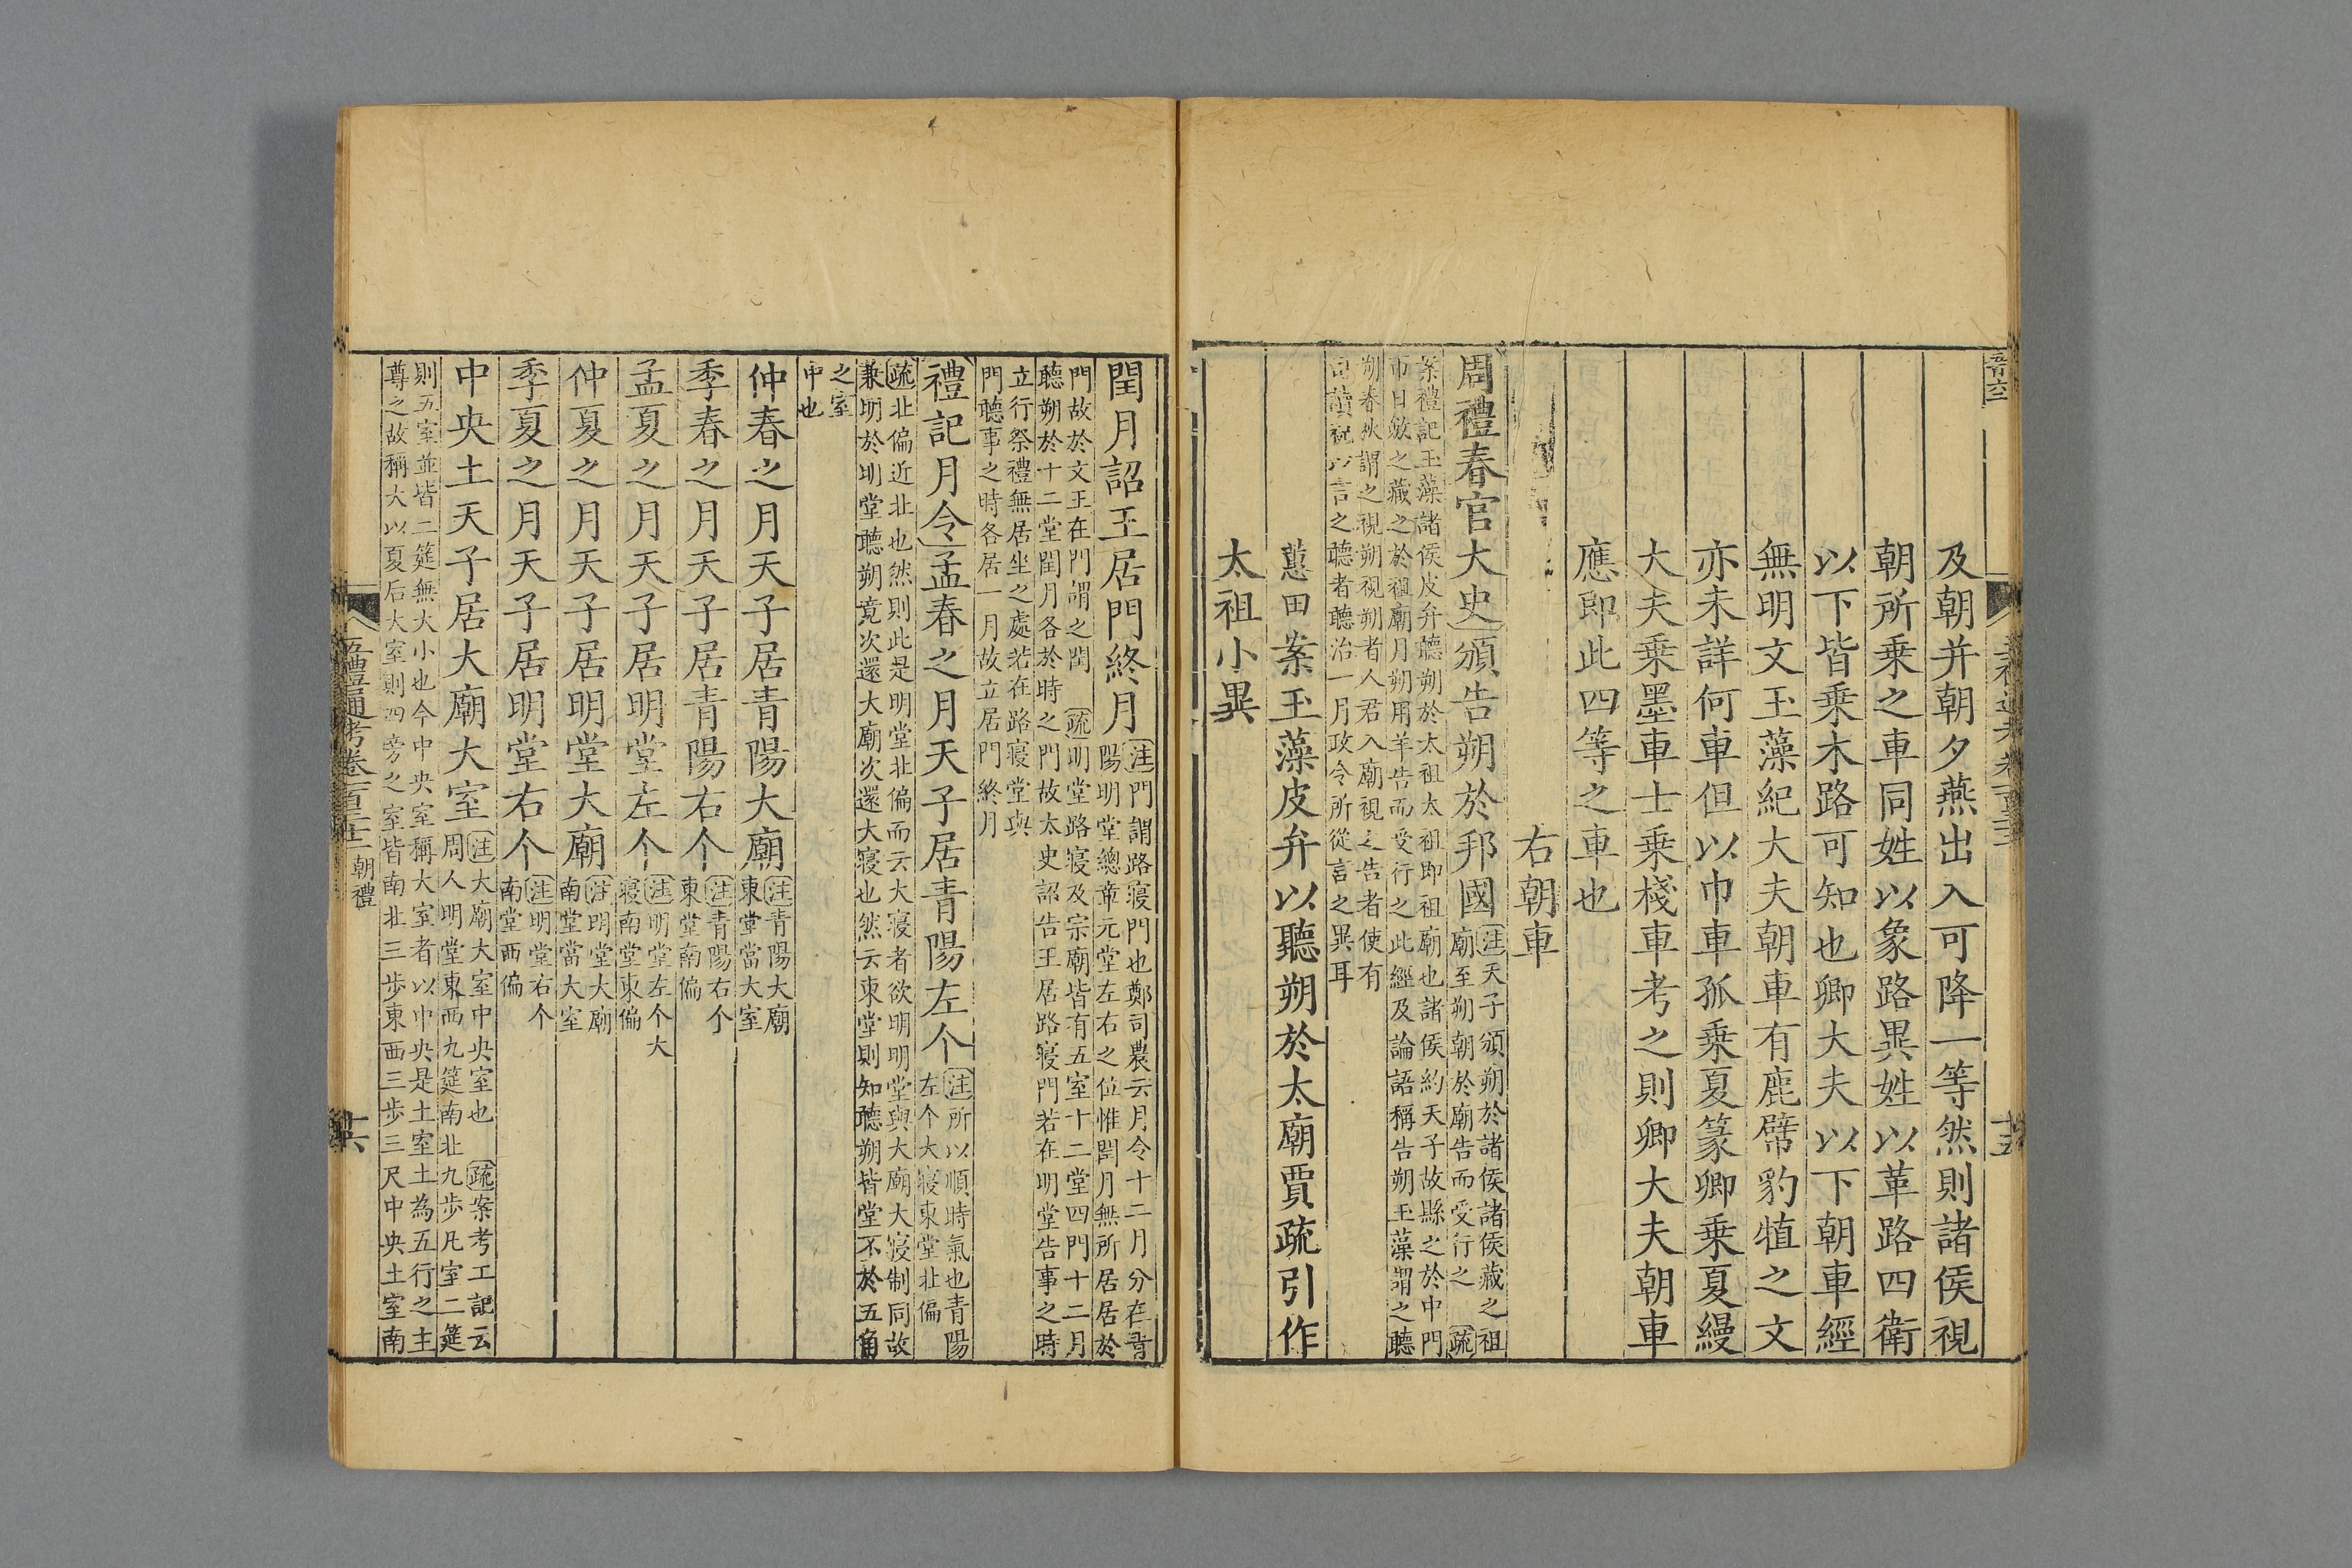 及朝并朝夕燕出入可降一等然則諸侯視
朝所乗之車同姓以象路異姓以革路四衛
以下皆乗木路可知也卿大夫以下朝車經
無明文玉藻紀大夫朝車有鹿幦豹犆之文
亦未詳何車但以巾車孤乗夏篆卿乗夏縵
大夫乗墨車士乗棧車考之則卿大夫朝車
應即此四等之車也
右朝車
周禮春官大史頒告朔於邦國
注天子頒朔於諸侯諸侯藏之祖
廟至朔朝於廟告而受行之 疏
案禮記玉藻諸侯皮弁聽朔於太祖太祖即祖廟也諸侯約天子故縣之於中門
帀日斂之藏之於祖廟月朔用羊告而受行之此經及論語稱告朔玉藻謂之聽
朔春秋謂之視朔視朔者人君入廟視之告者使有
司讀祝以言之聽者聽治一月政令所從言之異耳
蕙田案玉藻皮弁以聽朔於太廟賈疏引作
太祖小異
閏月詔王居門終月
注門謂路寢門也鄭司農云月令十二月分在青
陽明堂總章元堂左右之位惟閏月無所居居於
門故於文王在門謂之閏 疏明堂路寢及宗廟皆有五室十二堂四門十二月
聽朔於十二堂閏月各於時之門故太史詔告王居路寢門若在明堂告事之時
立行祭禮無居坐之處若在路寢堂與
門聽事之時各居一月故立居門終月
禮記月令孟春之月天子居青陽左个
注所以順時氣也青陽
左个大寢東堂北偏
疏北偏近北也然則此是明堂北偏而云大寢者欲明明堂與大廟大寢制同故
兼明於明堂聽朔竟次還大廟次還大寢也然云東堂則知聽朔皆堂不於五角
之室
中也
仲春之月天子居青陽大廟
注青陽大廟
東堂當大室
季春之月天子居青陽右个
注青陽右个
東堂南偏
孟夏之月天子居明堂左个
注明堂左个大
寢南堂東偏
仲夏之月天子居明堂大廟
注明堂大廟
南堂當大室
季夏之月天子居明堂右个
注明堂右个
南堂西偏
中央土天子居大廟大室
注大廟大室中央室也 疏案考工記云
周人明堂東西九筵南北九步凡室二筵
則五室並皆二筵無大小也今中央室稱大室者以中央是土室土為五行之主
尊之故稱大以夏后大室則四旁之室皆南北三步東西三步三尺中央土室南
五禮通考卷一百三十二 朝禮
十六